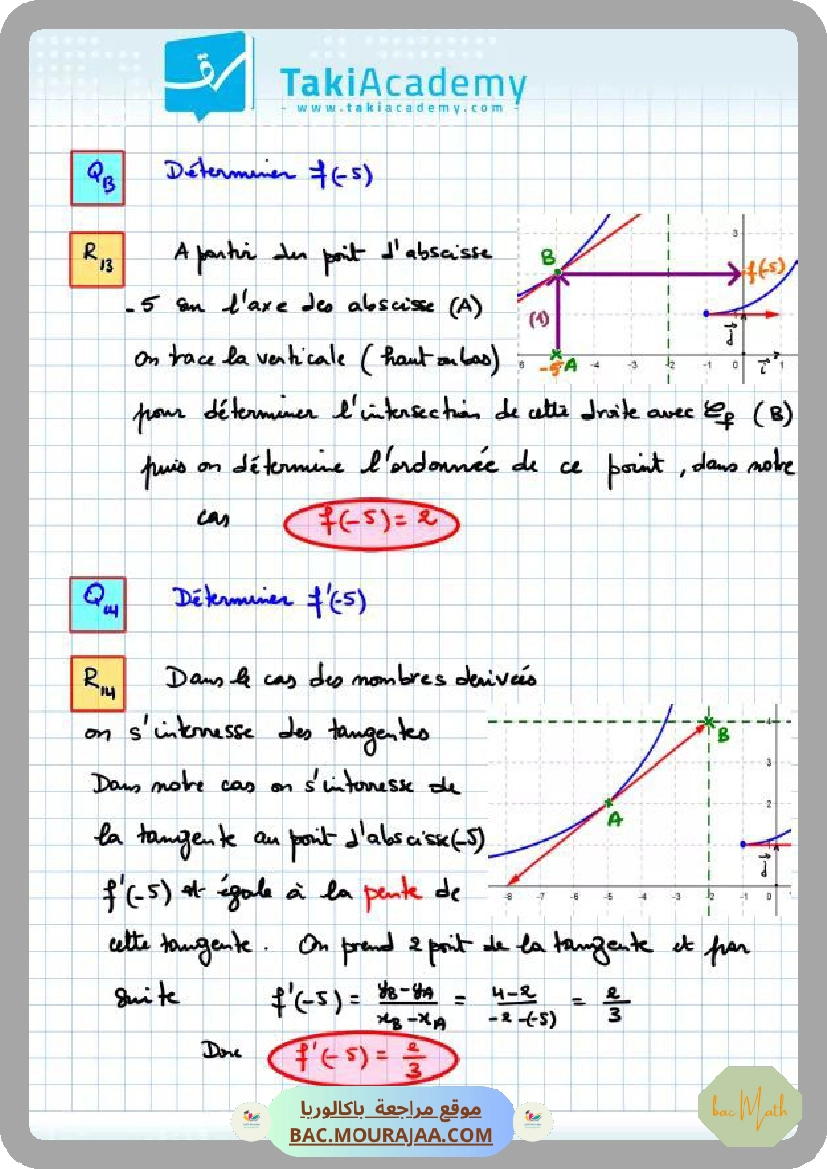 TakiAcademy
- www.takiacademy.com -
Q13 Déterminer f(-5)
R13 A partir du point d'abscisse
-5 sur l'axe des abscisse (A)
on trace la verticale (haut ou bas)
pour déterminer l'intersection de cette droite avec 𝒞f (B)
puis on détermine l'ordonnée de ce point, dans notre
cas f(-5) = 2
B
3
f(-5)
(1)
j
6 -5 A -4 -3 -2 -1 0 i 1
Q14 Déterminer f'(-5)
R14 Dans le cas des nombres derivées
on s'interresse des tangentes
Dans notre cas on s'interresse de
la tangente au point d'abscisse (-5)
f'(-5) est égale à la pente de
cette tangente. On prend 2 point de la tangente et par
suite f'(-5) = yB-yA/xB-xA = 4-2/-2-(-5) = 2/3
Donc f'(-5) = 2/3
4
B
3
2
A
1
j
-8 -7 -6 -5 -4 -3 -2 -1 0
موقع مراجعة باكالوريا
BAC.MOURAJAA.COM
bac Math